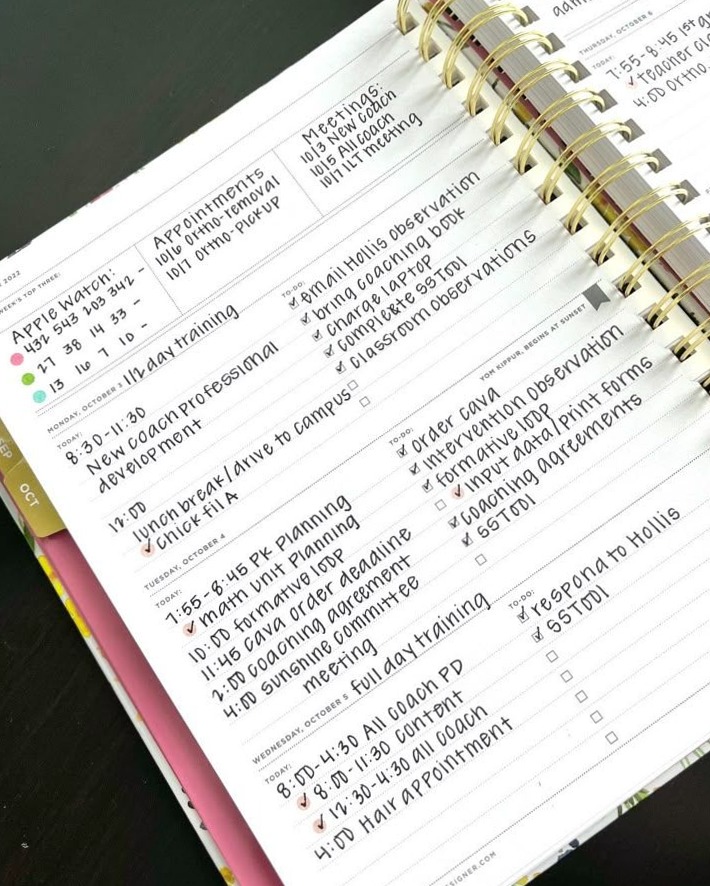 2022
WEEK'S TOP THREE:
Apple Watch:
432 543 203 342 -
27 38 14 33 -
13 16 7 10 -
Appointments
10/6 ortho-removal
10/7 ortho-pickup
Meetings:
10/3 New coach
10/5 All coach
10/7 ILT meeting
MONDAY, OCTOBER 3 1/2 day training
TODAY:
8:30-11:30
New coach professional
development
12:00
lunch break/drive to campus
chick fil A
TO-DO:
email Hollis observation
bring coaching book
charge laptop
complete SSTOOL
classroom observations
TUESDAY, OCTOBER 4
YOM KIPPUR, BEGINS AT SUNSET
TODAY:
7:55-8:45 PK Planning
math unit Planning
10:00 formative loop
11:45 cava order deadline
2:00 coaching agreement
4:00 sunshine committee
meeting
TO-DO:
order cava
intervention observation
formative loop
input data/print forms
coaching agreements
SSTOOL
WEDNESDAY, OCTOBER 5 full day training
TODAY:
8:00-4:30 All coach PD
8:00-11:30 content
12:30-4:30 all coach
4:00 Hair appointment
TO-DO:
respond to Hollis
SSTOOL
SIGNER.COM
OCT
EP
THURSDAY, OCTOBER 6
TODAY:
7:55-8:45 1st g
teacher cl
4:00 ortho